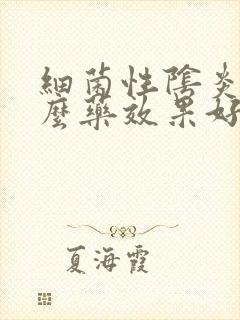 細菌性陰炎
麼藥效果好
夏海霞